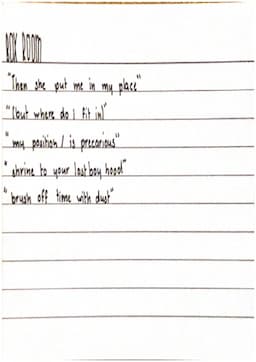 BOX ROOM
"Then she put me in my place"
"(but where do I fit in)"
"my position / is precarious"
"shrine to your lost boy hood"
"brush off time with dust"